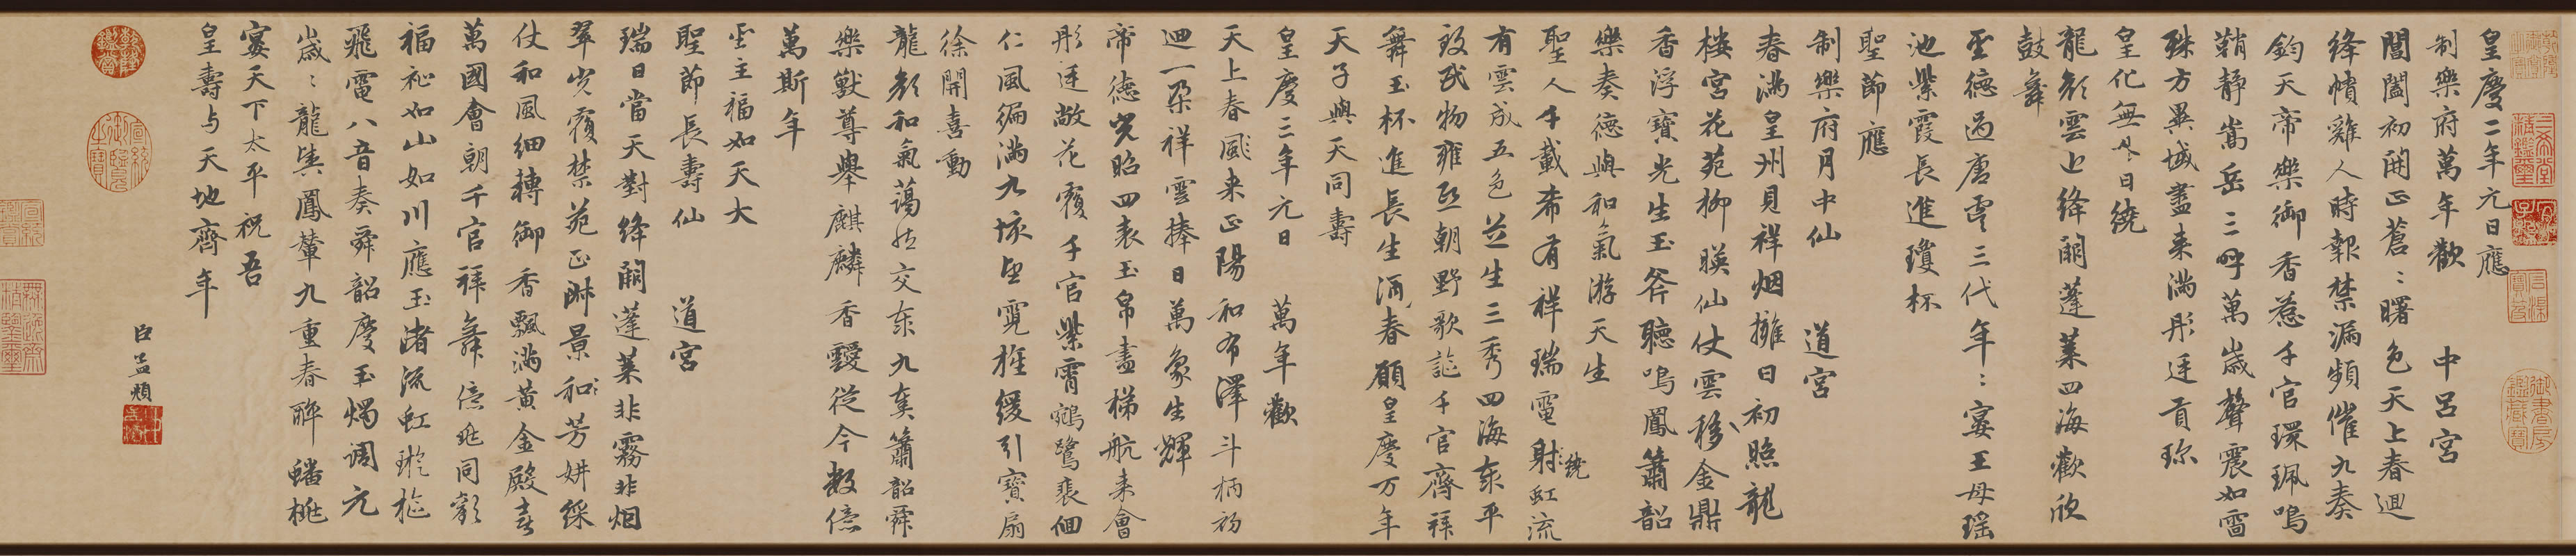 皇慶二年元日應
制樂府萬年歡 中呂宮
閶闔初開正蒼〻曙色天上春迴
絳幘雞人時報禁漏頻催九奏
鈞天帝樂御香惹千官環珮鳴
鞘靜嵩岳三呼萬歲聲震如雷
殊方異域盡来滿彤廷貢珎
皇化無外日繞
龍顏雲近絳闕蓬萊四海歡欣
鼓舞
聖德過唐虞三代年〻宴王母瑤
池紫霞長進瓊杯
聖節應
制樂府月中仙 道宮
春滿皇州見祥烟擁日初照龍
樓宮花苑柳暎仙仗雲移金鼎
香浮寶光生玉斧聽鳴鳳簫韶
樂奏德與和氣游天生
聖人千載希有祥瑞電射繞虹流
有雲成五色芝生三秀四海泰平
致民物雍熙朝野歌謳千官齊拜
舞玉杯進長生酒春願皇慶万年
天子與天同壽
皇慶三年元日 萬年歡
天上春歸来正陽和布澤斗柄初
迴一朶祥雲捧日萬象生輝
帝德光昭四表玉帛盡梯航来會
彤廷敞花覆千官紫霄鵷鷺裴佪
仁風徧滿九垓望霓旌緩引寶扇
徐開喜動
龍顏和氣藹然交泰九奏簫韶舜
樂獸尊舉麒麟香靉從今數億
萬斯年
聖主福如天大
聖節長壽仙 道宮
瑞日當天對絳闕蓬萊非霧非烟
翠光覆禁苑正淑景和芳妍綵
仗和風細轉御香飄滿黃金殿喜
萬國會朝千官拜舞億兆同歡
福祉如山如川應玉渚流虹璇樞
飛電八音奏舜韶慶玉燭調元
歲〻龍輿鳳輦九重春醉蟠桃
宴天下太平祝吾
皇壽与天地齊年
臣孟頫